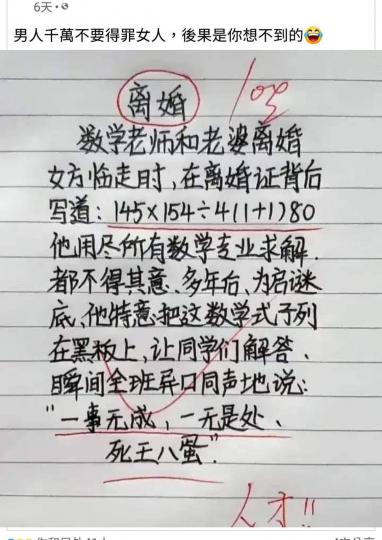 6天·
男人千萬不要得罪女人，後果是你想不到的😂
离婚
100
数学老师和老婆离婚
女方临走时,在离婚证背后
写道: 145×154÷4(1+1)80
他用尽所有数学专业求解.
都不得其意、多年后、为启谜
底、他特意把这数学式子列
在黑板上,让同学们解答、
瞬间全班异口同声地说:
"一事无成，一无是处、
死王八蛋".
人才!!